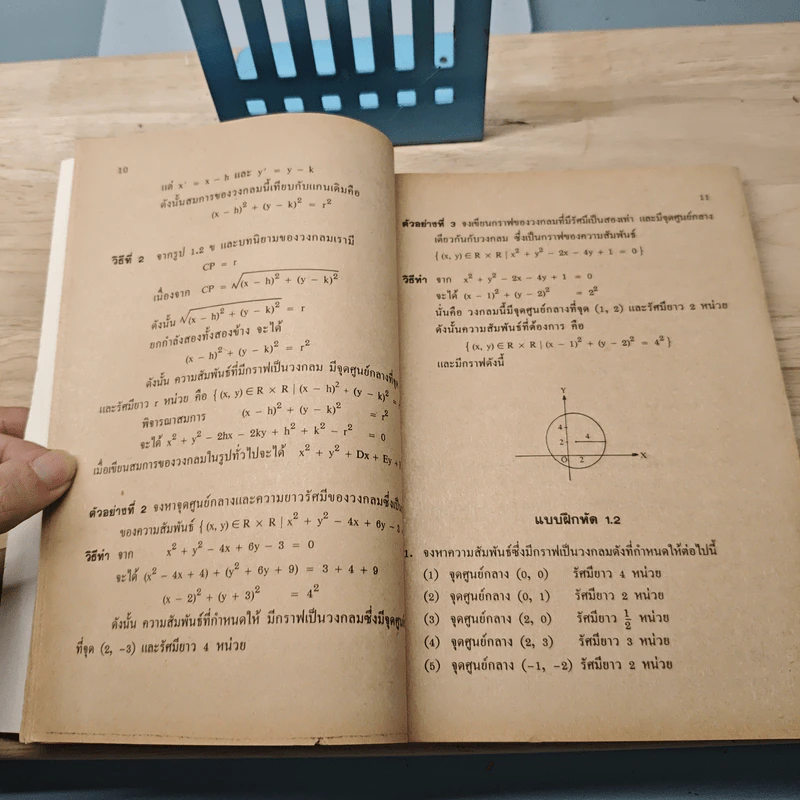 10
แต่ x' = x − h และ y' = y − k
ดังนั้นสมการของวงกลมนี้เทียบกับแกนเดิมคือ
(x − h)² + (y − k)² = r²
วิธีที่ 2 จากรูป 1.2 ข และบทนิยามของวงกลมเรามี
CP = r
เนื่องจาก CP = √(x − h)² + (y − k)²
ดังนั้น √(x − h)² + (y − k)² = r
ยกกำลังสองทั้งสองข้าง จะได้
(x − h)² + (y − k)² = r²
ดังนั้น ความสัมพันธ์ที่มีกราฟเป็นวงกลม มีจุดศูนย์กลางที่
และรัศมียาว r หน่วย คือ {(x, y) ∈ R × R | (x − h)² + (y − k)² =
พิจารณาสมการ (x − h)² + (y − k)² = r²
จะได้ x² + y² − 2hx − 2ky + h² + k² − r² = 0
เมื่อเขียนสมการของวงกลมในรูปทั่วไปจะได้ x² + y² + Dx + Ey +
ตัวอย่างที่ 2 จงหาจุดศูนย์กลางและความยาวรัศมีของวงกลมซึ่ง
ของความสัมพันธ์ {(x, y) ∈ R × R | x² + y² − 4x + 6y − 3
วิธีทำ จาก x² + y² − 4x + 6y − 3 = 0
จะได้ (x² − 4x + 4) + (y² + 6y + 9) = 3 + 4 + 9
(x − 2)² + (y + 3)² = 4²
ดังนั้น ความสัมพันธ์ที่กำหนดให้ มีกราฟเป็นวงกลมซึ่งมีจุด
ที่จุด (2, −3) และรัศมียาว 4 หน่วย
11
ตัวอย่างที่ 3 จงเขียนกราฟของวงกลมที่มีรัศมีเป็นสองเท่า และมีจุดศูนย์กลาง
เดียวกันกับวงกลม ซึ่งเป็นกราฟของความสัมพันธ์
{(x, y) ∈ R × R | x² + y² − 2x − 4y + 1 = 0}
วิธีทำ จาก x² + y² − 2x − 4y + 1 = 0
จะได้ (x − 1)² + (y − 2)² = 2²
นั่นคือ วงกลมนี้มีจุดศูนย์กลางที่จุด (1, 2) และรัศมียาว 2 หน่วย
ดังนั้นความสัมพันธ์ที่ต้องการ คือ
{(x, y) ∈ R × R | (x − 1)² + (y − 2)² = 4²}
และมีกราฟดังนี้
Y
4
2 4
O 2 X
แบบฝึกหัด 1.2
1. จงหาความสัมพันธ์ซึ่งมีกราฟเป็นวงกลมดังที่กำหนดให้ต่อไปนี้
(1) จุดศูนย์กลาง (0, 0) รัศมียาว 4 หน่วย
(2) จุดศูนย์กลาง (0, 1) รัศมียาว 2 หน่วย
(3) จุดศูนย์กลาง (2, 0) รัศมียาว ½ หน่วย
(4) จุดศูนย์กลาง (2, 3) รัศมียาว 3 หน่วย
(5) จุดศูนย์กลาง (−1, −2) รัศมียาว 2 หน่วย